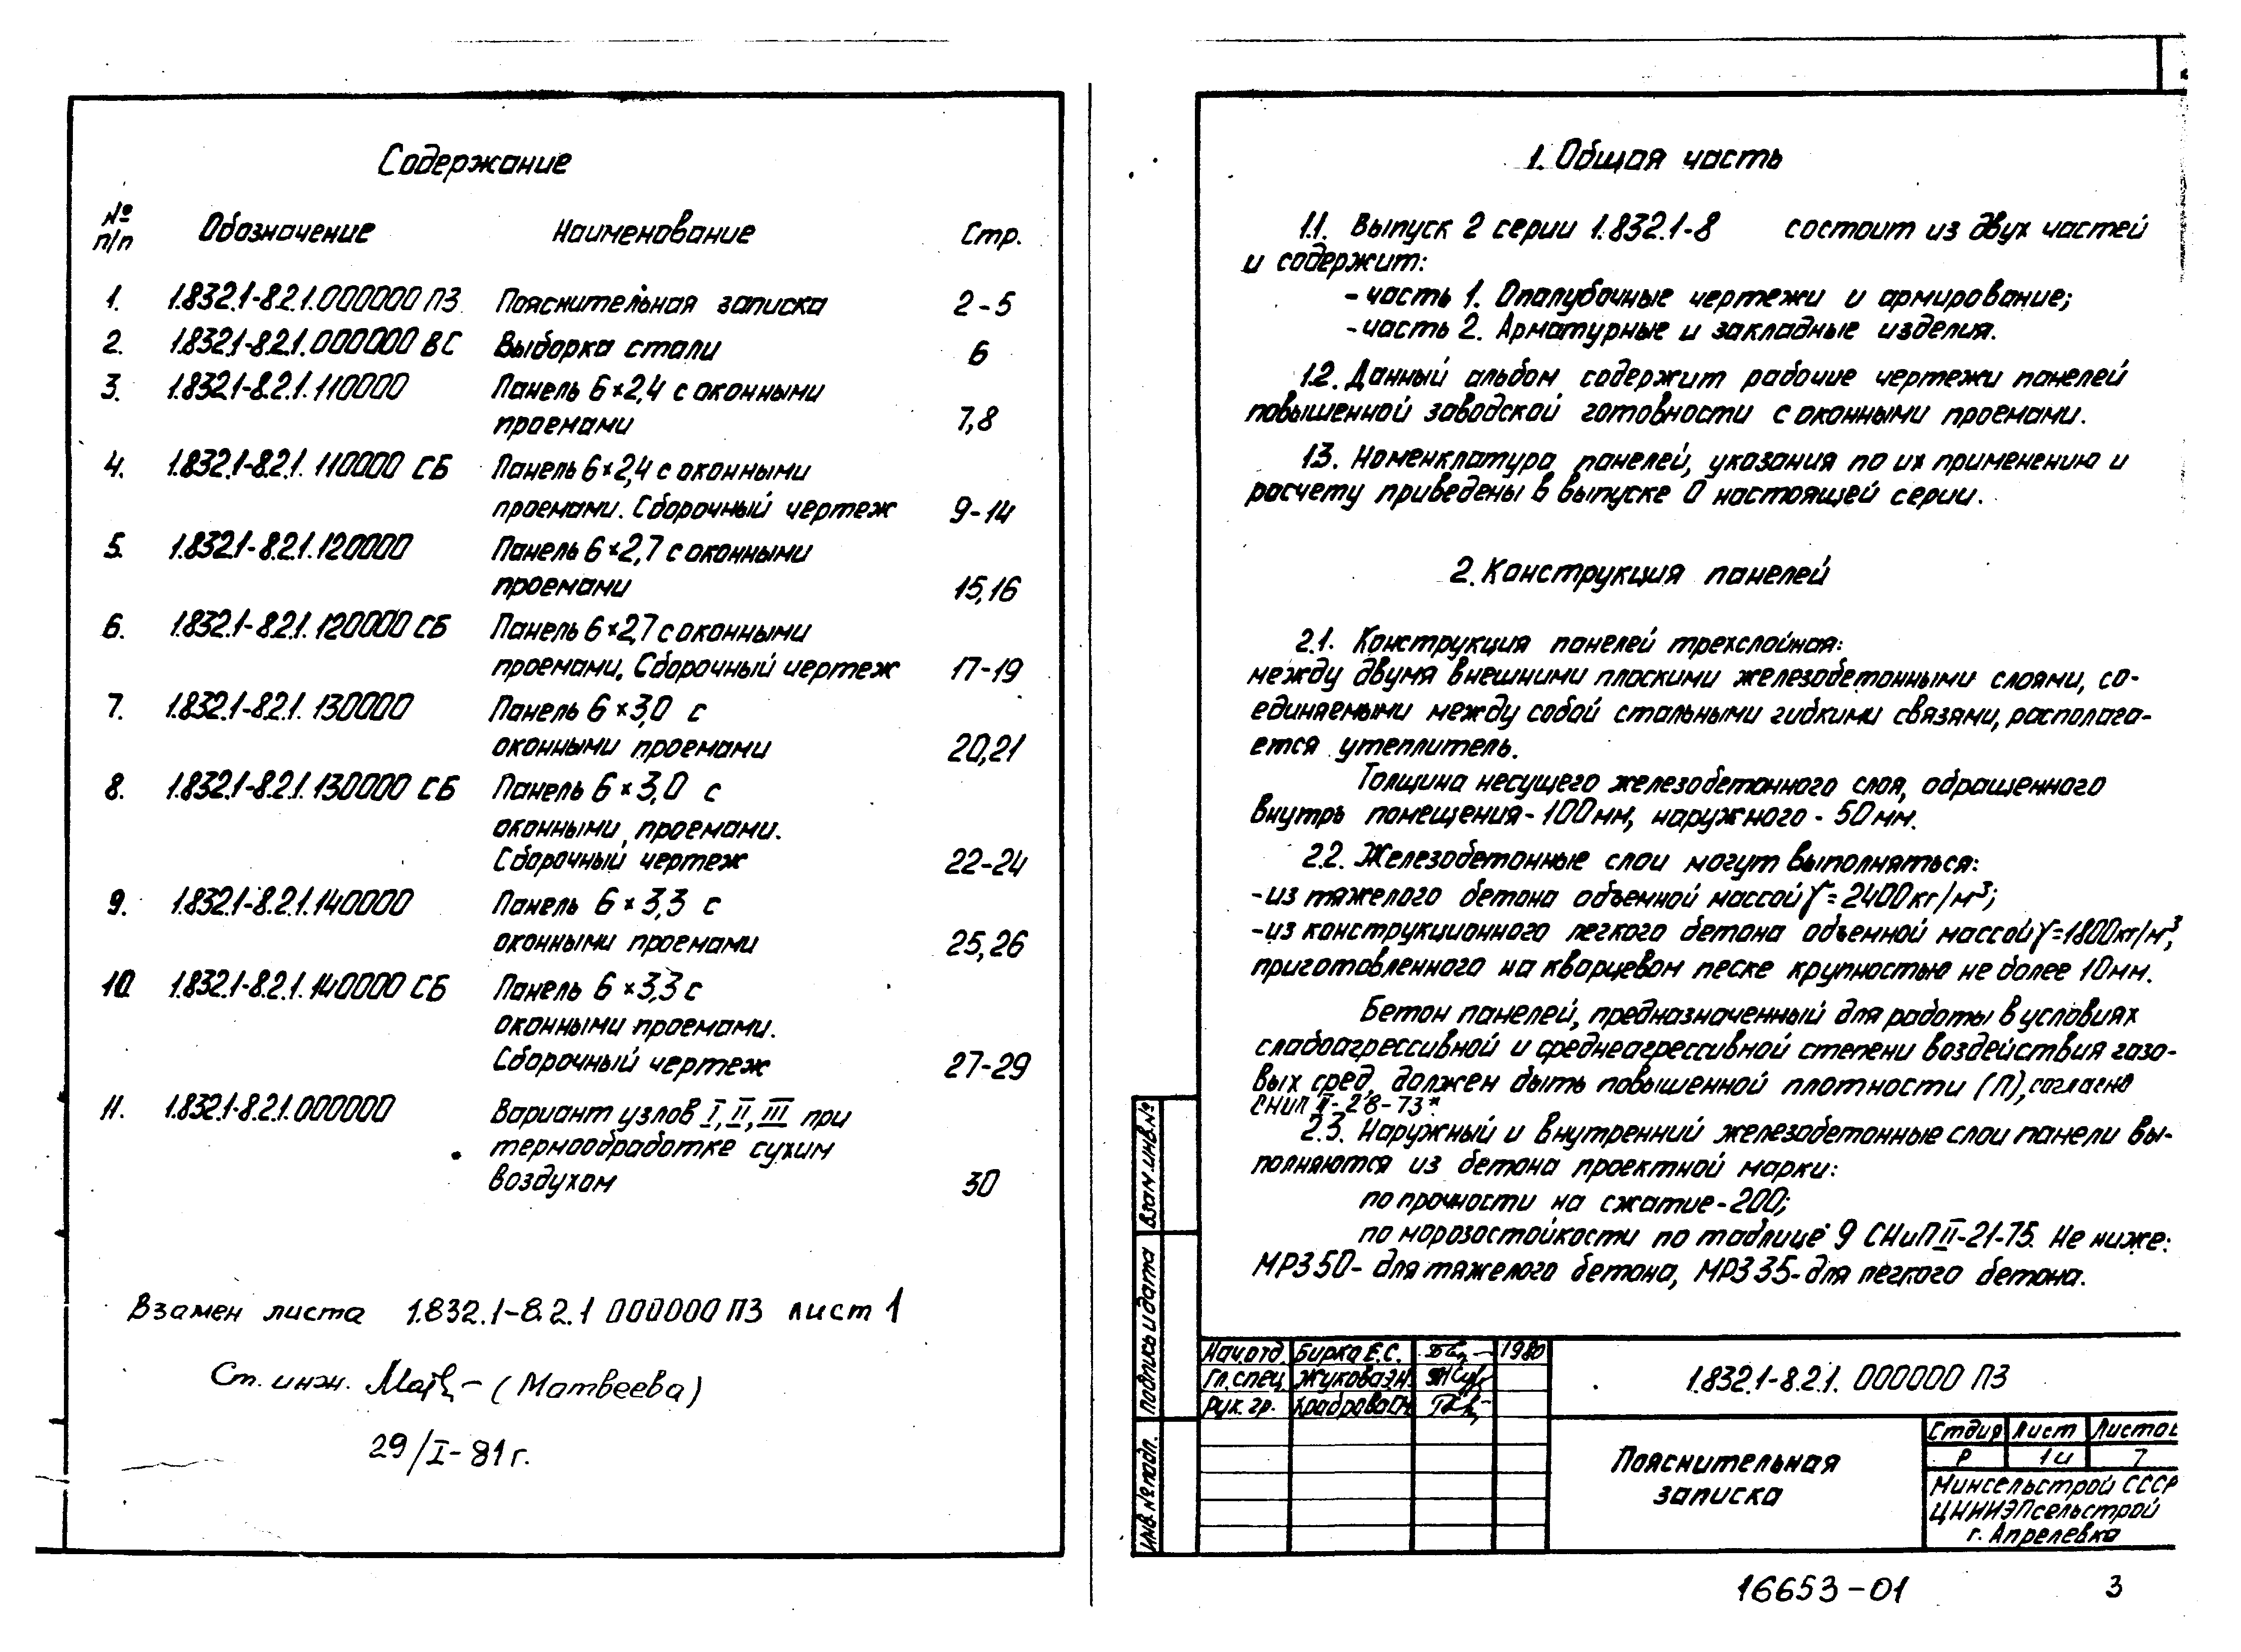 Содержание
№ п/п Обозначение Наименование Стр.
1. 1.832.1-8.2.1.000000 ПЗ Пояснительная записка 2-5
2. 1.832.1-8.2.1.000000 ВС Выборка стали 6
3. 1.832.1-8.2.1.110000 Панель 6×2,4 с оконными
проемами 7,8
4. 1.832.1-8.2.1. 110000 СБ Панель 6×2,4 с оконными
проемами. Сборочный чертеж 9-14
5. 1.832.1-8.2.1.120000 Панель 6×2,7 с оконными
проемами 15,16
6. 1.832.1-8.2.1. 120000 СБ Панель 6×2,7 с оконными
проемами. Сборочный чертеж 17-19
7. 1.832.1-8.2.1. 130000 Панель 6×3,0 с
оконными проемами 20,21
8. 1.832.1-8.2.1. 130000 СБ Панель 6×3,0 с
оконными проемами.
Сборочный чертеж 22-24
9. 1.832.1-8.2.1.140000 Панель 6×3,3 с
оконными проемами 25,26
10. 1.832.1-8.2.1. 140000 СБ Панель 6×3,3 с
оконными проемами.
Сборочный чертеж 27-29
11. 1.832.1-8.2.1.000000 Вариант узлов I, II, III при
термообработке сухим
воздухом 30
Взамен листа 1.832.1-8.2.1 000000 ПЗ лист 1
Ст. инж. (Матвеева)
29/I-81г.
1. Общая часть
1.1. Выпуск 2 серии 1.832.1-8 состоит из двух частей
и содержит:
- часть 1. Опалубочные чертежи и армирование;
- часть 2. Арматурные и закладные изделия.
1.2. Данный альбом содержит рабочие чертежи панелей
повышенной заводской готовности с оконными проемами.
1.3. Номенклатура панелей, указания по их применению и
расчету приведены в выпуске 0 настоящей серии.
2. Конструкция панелей
2.1. Конструкция панелей трехслойная:
между двумя внешними плоскими железобетонными слоями, со-
единяемыми между собой стальными гибкими связями, располага-
ется утеплитель.
Толщина несущего железобетонного слоя, обращенного
внутрь помещения - 100мм, наружного - 50мм.
2.2. Железобетонные слои могут выполняться:
- из тяжелого бетона объемной массой γ=2400кг/м³;
- из конструкционного легкого бетона объемной массой γ=1800кг/м³,
приготовленного на кварцевом песке крупностью не более 10мм.
Бетон панелей, предназначенный для работы в условиях
слабоагрессивной и среднеагрессивной степени воздействия газо-
вых сред, должен быть повышенной плотности (П), согласно
СНиП II-28-73*.
2.3. Наружный и внутренний железобетонные слои панели вы-
полняются из бетона проектной марки:
по прочности на сжатие - 200;
по морозостойкости по таблице 9 СНиП II-21-75. Не ниже:
МРЗ 50 - для тяжелого бетона, МРЗ 35 - для легкого бетона.
Взам. инв. №
Подпись и дата
Инв. № подл.
Нач.отд. Бирка Е.С. 1980
Гл.спец. Жукова Э.Н.
Рук. гр.
1.832.1-8.2.1. 000000 ПЗ
Пояснительная
записка
Стдия Лист Листов
Р 1и 7
Минсельстрой СССР
ЦНИИЭПсельстрой
г. Апрелевка
16653-01 3